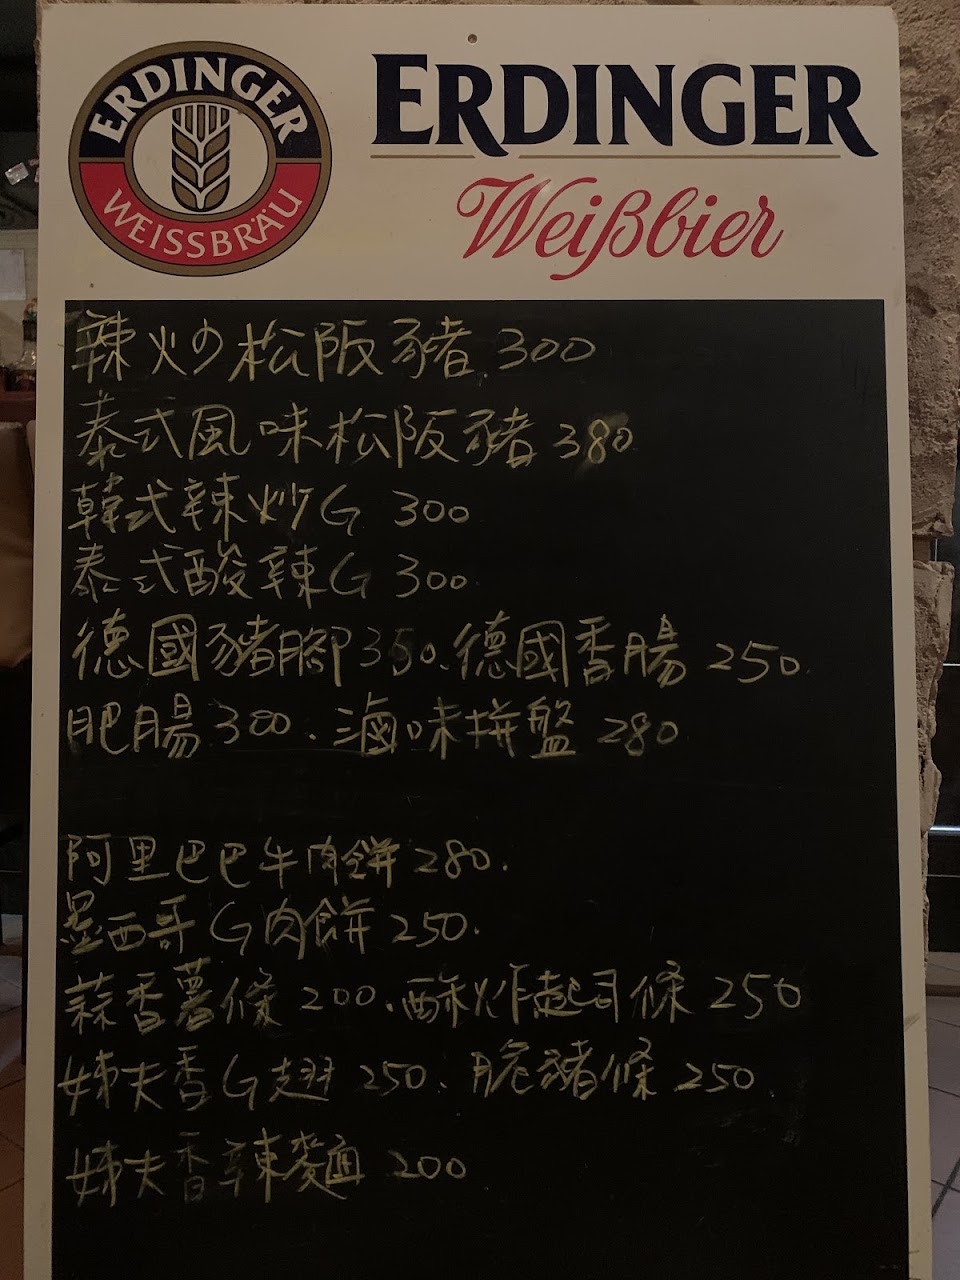 ERDINGER
WEISSBRÄU
ERDINGER
Weißbier
辣炒松阪豬 300
泰式風味松阪豬 380
韓式辣炒G 300
泰式酸辣G 300
德國豬腳 350、德國香腸 250
肥腸 300、滷味拼盤 280
阿里巴巴牛肉餅 280.
墨西哥G肉餅 250.
蒜香薯條 200、酥炸起司條 250
姊夫香G翅 250、脆豬條 250
姊夫香辣麵 200